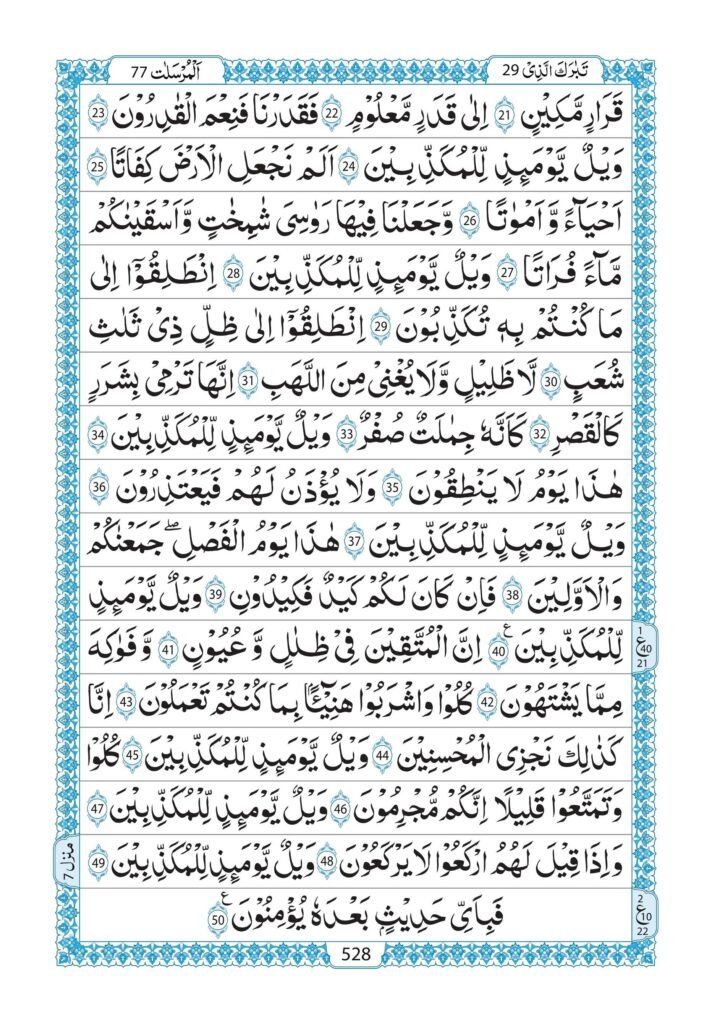 تَبٰرَكَ الَّذِیْ 29
اَلْمُرْسَلٰت 77
قَرَارٍ مَّكِیْنٍ 21 اِلٰی قَدَرٍ مَّعْلُوْمٍ 22 فَقَدَرْنَا فَنِعْمَ الْقٰدِرُوْنَ 23
وَیْلٌ یَّوْمَىِٕذٍ لِّلْمُكَذِّبِیْنَ 24 اَلَمْ نَجْعَلِ الْاَرْضَ كِفَاتًا 25
اَحْیَآءً وَّ اَمْوٰتًا 26 وَّ جَعَلْنَا فِیْهَا رَوٰسِیَ شٰمِخٰتٍ وَّ اَسْقَیْنٰكُمْ
مَّآءً فُرَاتًا 27 وَیْلٌ یَّوْمَىِٕذٍ لِّلْمُكَذِّبِیْنَ 28 اِنْطَلِقُوْۤا اِلٰی
مَا كُنْتُمْ بِهٖ تُكَذِّبُوْنَ 29 اِنْطَلِقُوْۤا اِلٰی ظِلٍّ ذِیْ ثَلٰثِ
شُعَبٍ 30 لَّا ظَلِیْلٍ وَّ لَا یُغْنِیْ مِنَ اللَّهَبِ 31 اِنَّهَا تَرْمِیْ بِشَرَرٍ
كَالْقَصْرِ 32 كَاَنَّهٗ جِمٰلَتٌ صُفْرٌ 33 وَیْلٌ یَّوْمَىِٕذٍ لِّلْمُكَذِّبِیْنَ 34
هٰذَا یَوْمُ لَا یَنْطِقُوْنَ 35 وَ لَا یُؤْذَنُ لَهُمْ فَیَعْتَذِرُوْنَ 36
وَیْلٌ یَّوْمَىِٕذٍ لِّلْمُكَذِّبِیْنَ 37 هٰذَا یَوْمُ الْفَصْلِ ۖۚ جَمَعْنٰكُمْ
وَ الْاَوَّلِیْنَ 38 فَاِنْ كَانَ لَكُمْ كَیْدٌ فَكِیْدُوْنِ 39 وَیْلٌ یَّوْمَىِٕذٍ
لِّلْمُكَذِّبِیْنَ ع 40 اِنَّ الْمُتَّقِیْنَ فِیْ ظِلٰلٍ وَّ عُیُوْنٍ 41 وَّ فَوٰكِهَ
1 ع 40 21
مِمَّا یَشْتَهُوْنَ 42 كُلُوْا وَ اشْرَبُوْا هَنِیْٓـًٔۢا بِمَا كُنْتُمْ تَعْمَلُوْنَ 43 اِنَّا
كَذٰلِكَ نَجْزِی الْمُحْسِنِیْنَ 44 وَیْلٌ یَّوْمَىِٕذٍ لِّلْمُكَذِّبِیْنَ 45 كُلُوْا
وَ تَمَتَّعُوْا قَلِیْلًا اِنَّكُمْ مُّجْرِمُوْنَ 46 وَیْلٌ یَّوْمَىِٕذٍ لِّلْمُكَذِّبِیْنَ 47
وَ اِذَا قِیْلَ لَهُمُ ارْكَعُوْا لَا یَرْكَعُوْنَ 48 وَیْلٌ یَّوْمَىِٕذٍ لِّلْمُكَذِّبِیْنَ 49
منزل 7
فَبِاَیِّ حَدِیْثٍۭ بَعْدَهٗ یُؤْمِنُوْنَ ع 50
2 ع 10 22
528